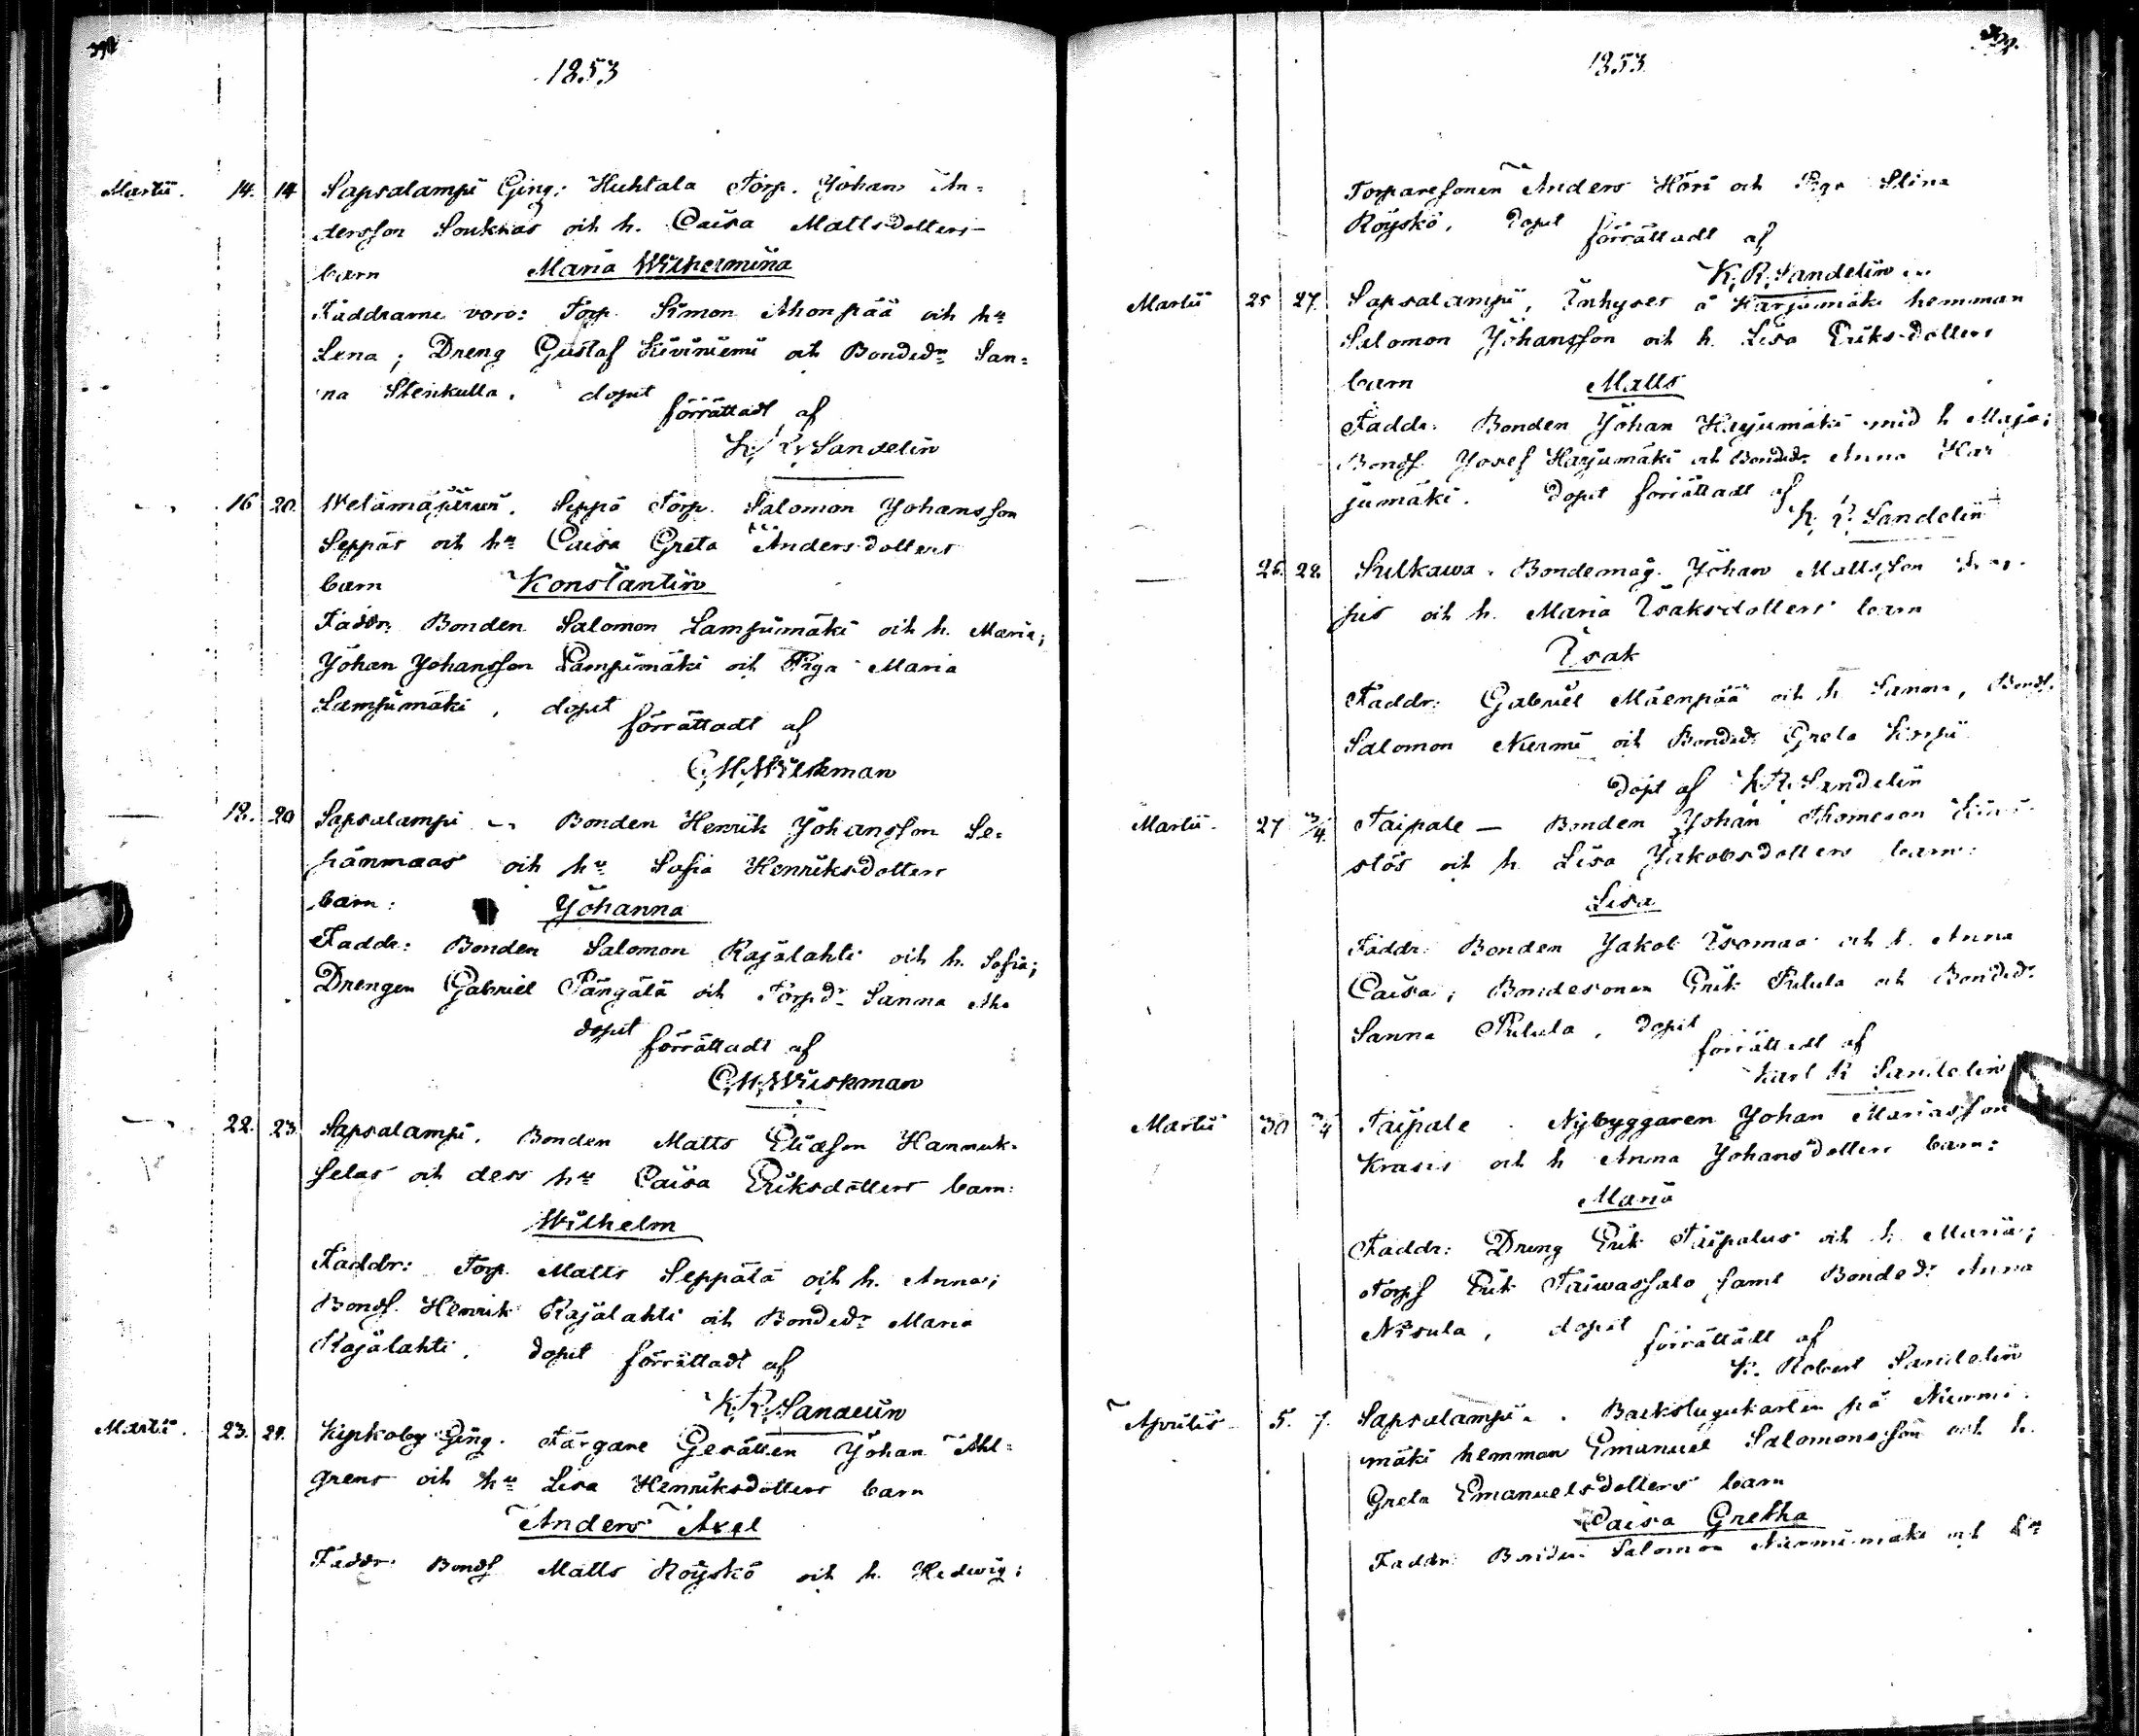 1853
Martii. 14. 14 Sapsalampi Ging: Huhtala Torp. Johan An-
dersson Souknäs och h. Caisa Mattsdotters
barn Maria Wilhermina
Faddrarne voro: Torp. Simon Ahonpää och hu
Lena; Dreng Gustaf Kiviniemi och Bonded. San-
na Stenkulla. dopet
förrättadt af
K. R. Sandelin
16 20. Seppä Torp. Salomon Johansson
Seppäs och hu Caisa Greta Andersdotters
barn Konstantin
Faddr: Bonden Salomon Lampimäki och h. Maria;
Johan Johansson Lampimäki och Piga Maria
Lampimäki, dopet
förrättadt af
C. M. Wilskman
18. 20 Sapsalampi Bonden Henrik Johansson Se-
pänmaas och hu Sofia Henriksdotters
barn: Johanna
Faddr: Bonden Salomon Rajalahti och h. Sofia;
Drengen Gabriel Pängälä och Torpd. Sanna Aho
dopet
förrättadt af
C. M. Wilskman
22. 23. Sapsalampi. Bonden Matts Eliasson Hannuk-
selas och dess hu Caisa Eriksdotters barn:
Wilhelm
Faddr: Torp. Matts Seppälä och h. Anna;
Bonds. Henrik Rajalahti och Bonded. Maria
Rajalahti. dopet förrättadt af
K. R. Sandelin
Martii. 23. 29. Kyrkoby Ging. Färgare Gesällen Johan Ahl-
grens och hu Lisa Henriksdotters barn
Anders Axel
Faddr: Bonds Matts Röyskö och h. Hedwig;
1853
Torparesonen Anders Höri och Piga Stina
Röyskö. dopet
förrättadt af
K. R. Sandelin
Martii 25 27. Sapsalampi, Inhyses å Harjumäki hemman
Salomon Johansson och h. Lisa Eriksdotters
barn Matts
Faddr: Bonden Johan Harjumäki med h. Maja;
Bonds. Josef Harjumäki och Bonded. Anna Har
jumäki. dopet förrättadt af
K. R. Sandelin
26. 28. Sulkawa. Bondemåg. Johan Mattsson
och h. Maria Isaksdotters barn
Isak
Faddr: Gabriel Mäenpää och h. Sanna, Bonds.
Salomon Nurmi och Bonded. Greta
döpt af K. R. Sandelin
Martii. 27 3/4. Taipale — Bonden Johan Thomasson
stös och h. Lisa Jakobsdotters barn:
Lisa
Faddr. Bonden Jakob Isomaa och h. Anna
Caisa; Bondesonen Erik Pulula och Bonded.
Sanna Pulula. dopet
förrättadt af
Karl R Sandelin
Martii 30 3/4 Taipale. Nybyggaren Johan Mariasson
Krasis och h Anna Johansdotters barn:
Maria
Faddr: Dreng Erik Taipalus och h. Maria;
Torps Erik Taiwassalo samt Bonded. Anna
Nisula, dopet
förrättadt af
K. Robert Sandelin
Aprilis 5. 7. Sapsalampi. Backstugukarlen på Nurmi
mäki hemman Emanuel Salomonsson och h.
Greta Emanuelsdotters barn
Caisa Gretha
Faddr: Bonden Salomon Nurmimäki och hu